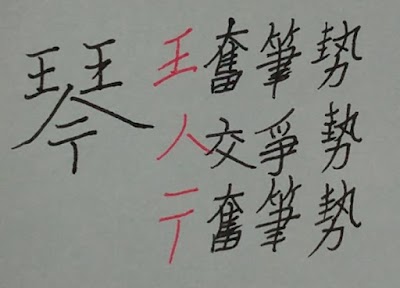 琴
王奮筆勢
人交爭勢
亍奮筆勢